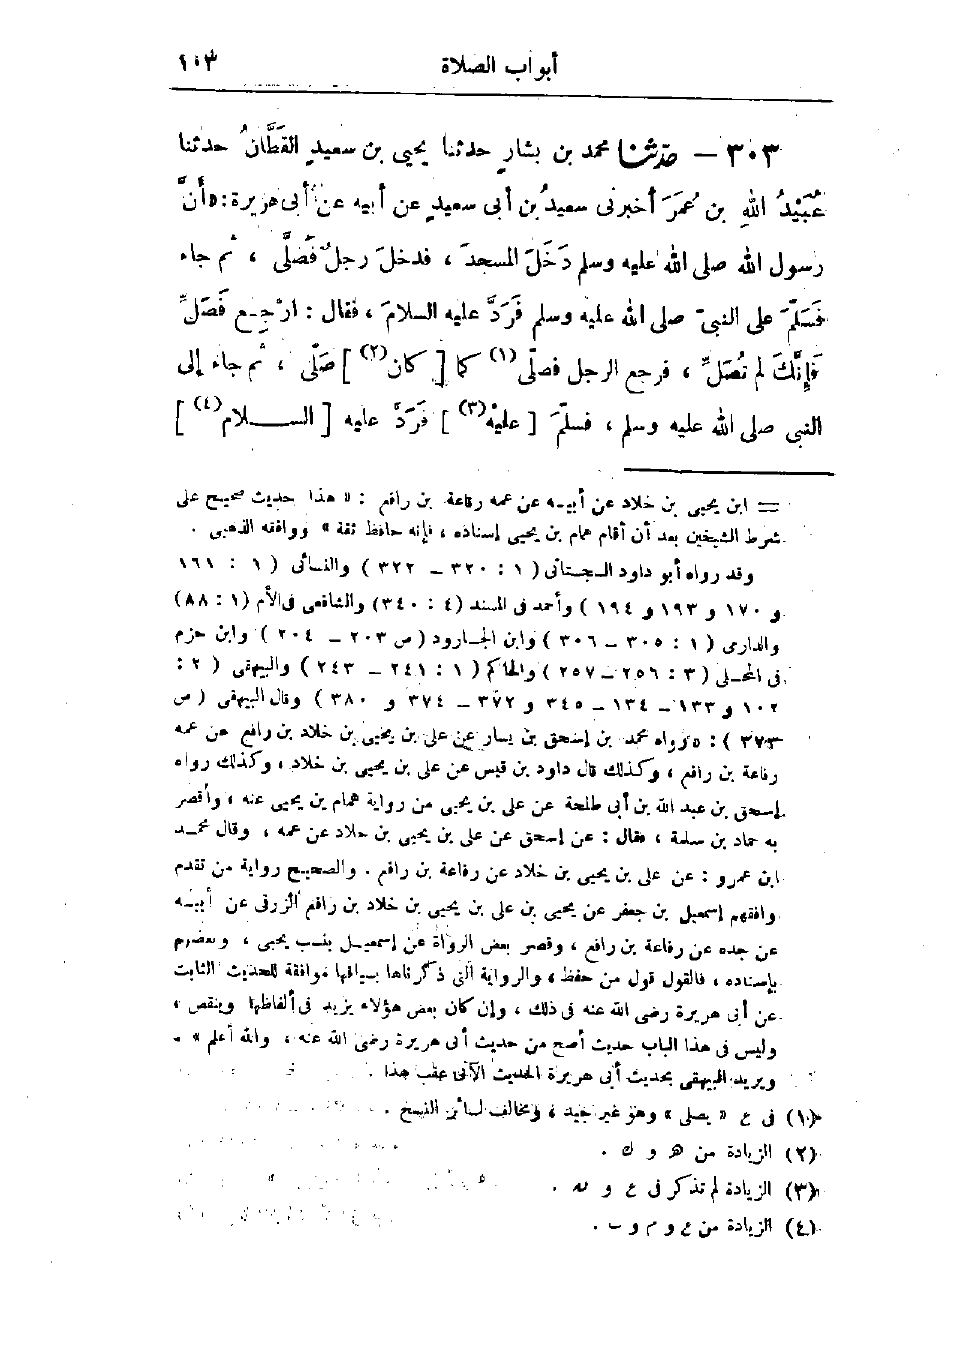 أبواب الصلاة ١٠٣
٣٠٣ — حدثنا محمد بن بشار حدثنا يحيى بن سعيدٍ القَطَّانُ حدثنا
عُبَيْدُ اللهِ بن عُمَرَ أخبرنى سعيدُ بن أبى سعيدٍ عن أبيه عن أبى هريرة: «أنَّ
رسول الله صلى الله عليه وسلم دَخَلَ المسجدَ ، فدخلَ رجلٌ فَصَلَّى ، ثم جاء
فَسَلَّمَ على النبىّ صلى الله عليه وسلم فَرَدَّ عليه السلامَ ، فقال : ارْجِع فَصَلِّ
فَإِنَّكَ لم تُصَلِّ ، فرجع الرجل فصلَّى (١) كما [ كان (٢) ] صَلَّى ، ثم جاء إلى
النبى صلى الله عليه وسلم ، فسلَّمَ [ عليْه (٣) ] فَرَدَّ عليه [ السلام (٤) ]
= ابن يحيى بن خلاد عن أبيه عن عمه رفاعة بن رافع : « هذا حديث صحيح على
شرط الشيخين بعد أن أقام همام بن يحيى إسناده ، فإنه حافظ ثقة » ووافقه الذهبى .
وقد رواه أبو داود السجستانى ( ١ : ٣٢٠ — ٣٢٢ ) والنسائى ( ١ : ١٦١
و ١٧٠ و ١٩٣ و ١٩٤ ) وأحمد فى المسند (٤ : ٣٤٠) والشافعى فى الأم (١ : ٨٨)
والدارمى ( ١ : ٣٠٥ — ٣٠٦ ) وابن الجارود ( ص ٢٠٣ — ٢٠٤ ) وابن حزم
فى المحلى ( ٣ : ٢٥٦ — ٢٥٧ ) والحاكم ( ١ : ٢٤١ — ٢٤٣ ) والبيهقى ( ٢ :
١٠٢ و ١٣٣ — ١٣٤ — ٣٤٥ و ٣٧٢ — ٣٧٤ و ٣٨٠ ) وقال البيهقى ( ص
٣٧٣ ) : «رواه محمد بن إسحق بن يسار عن على بن يحيى بن خلاد بن رافع عن عمه
رفاعة بن رافع ، وكذلك قال داود بن قيس عن على بن يحيى بن خلاد ، وكذلك رواه
إسحق بن عبد الله بن أبى طلحة عن على بن يحيى من رواية همام بن يحيى عنه ، وأقصر
به حماد بن سلمة ، فقال : عن إسحق عن على بن يحيى بن خلاد عن عمه ، وقال محمد
ابن عمرو : عن على بن يحيى بن خلاد عن رفاعة بن رافع . والصحيح رواية من تقدم
وافقهم إسمعيل بن جعفر عن يحيى بن على بن يحيى بن خلاد بن رافع الزرقى عن أبيه
عن جده عن رفاعة بن رافع ، وقصر بعض الرواة عن إسمعيل بنسب يحيى ، وبعضهم
بإسناده ، فالقول قول من حفظ ، والرواية التى ذكرناها بسياقها موافقة للحديث الثابت
عن أبى هريرة رضى الله عنه فى ذلك ، وإن كان بعض هؤلاء يزيد فى ألفاظها وينقص ،
وليس فى هذا الباب حديث أصح من حديث أبى هريرة رضى الله عنه ، والله أعلم » .
ويريد البيهقى بحديث أبى هريرة الحديث الآتى عقب هذا .
(١) فى ع « يصلى » وهو غير جيد ، ومخالف لسائر النسخ .
(٢) الزيادة من ه و ك .
(٣) الزيادة لم تذكر فى ع و ه .
(٤) الزيادة من ع و م و ب .